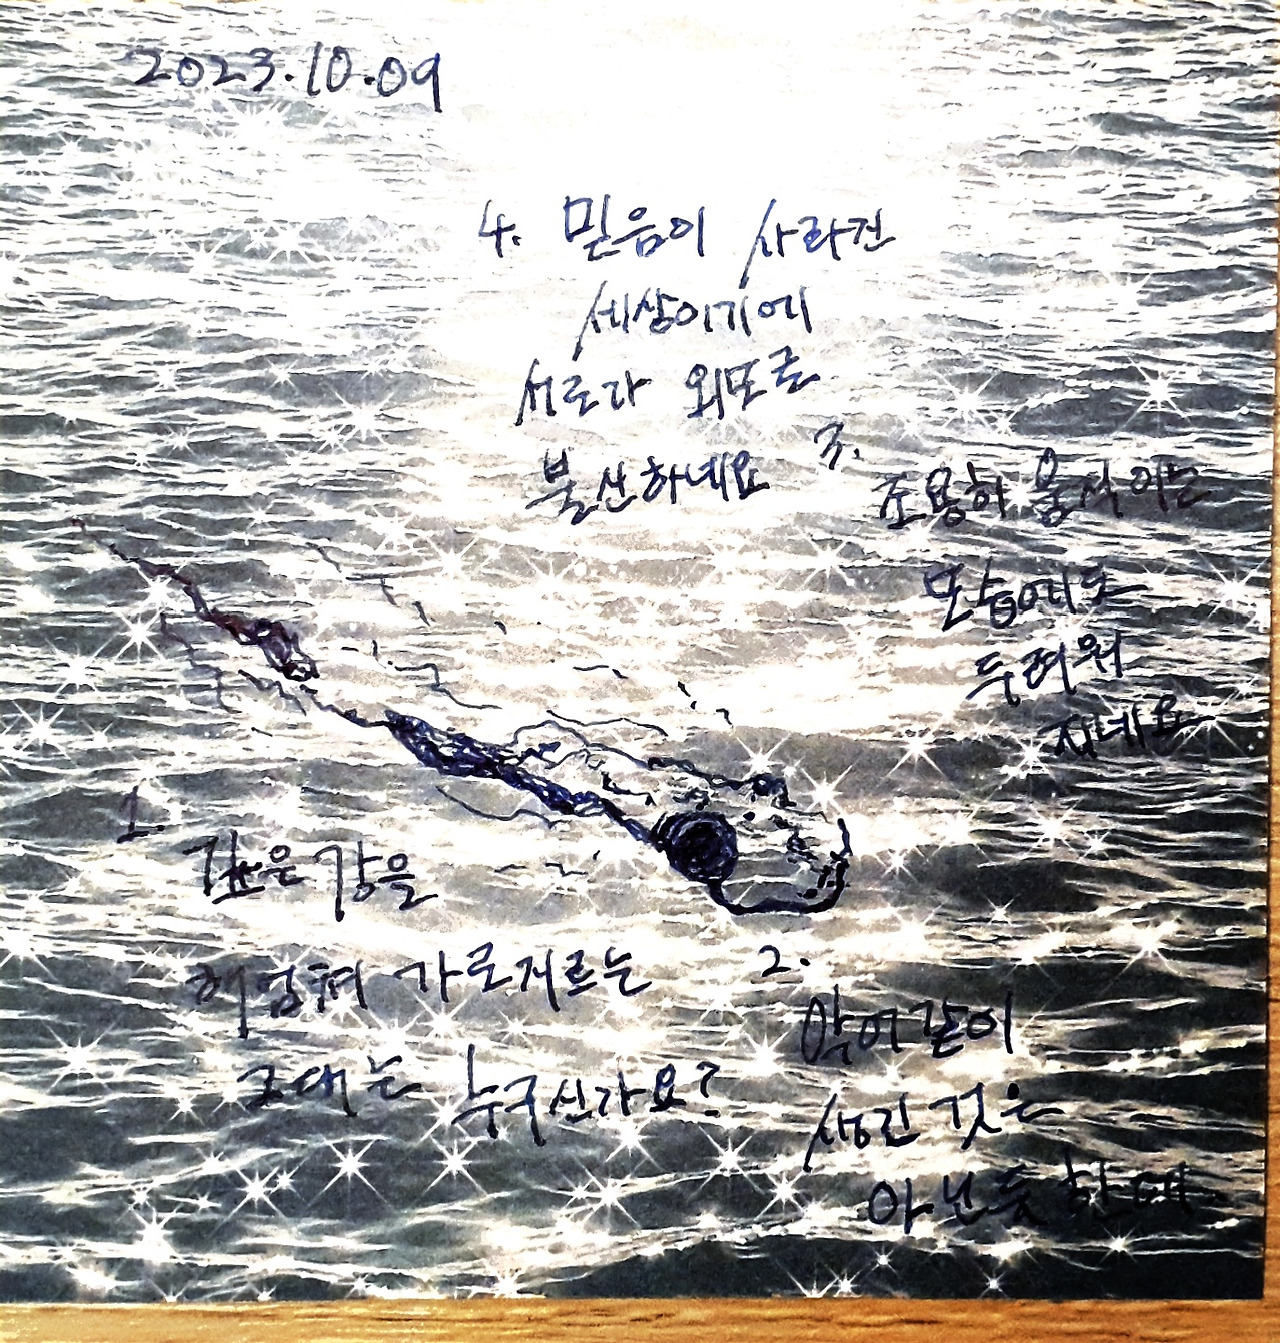 2023.10.09
4. 믿음이 사라진
세상이기에
서로가 외모로
불신하네요
3.
조용히 움직이는
모습에도
두려워
지네요
1.
깊은 강을
헤엄쳐 가로지르는
그대는 누구신가요?
2.
악어같이
생긴 것은
아닌듯 한데